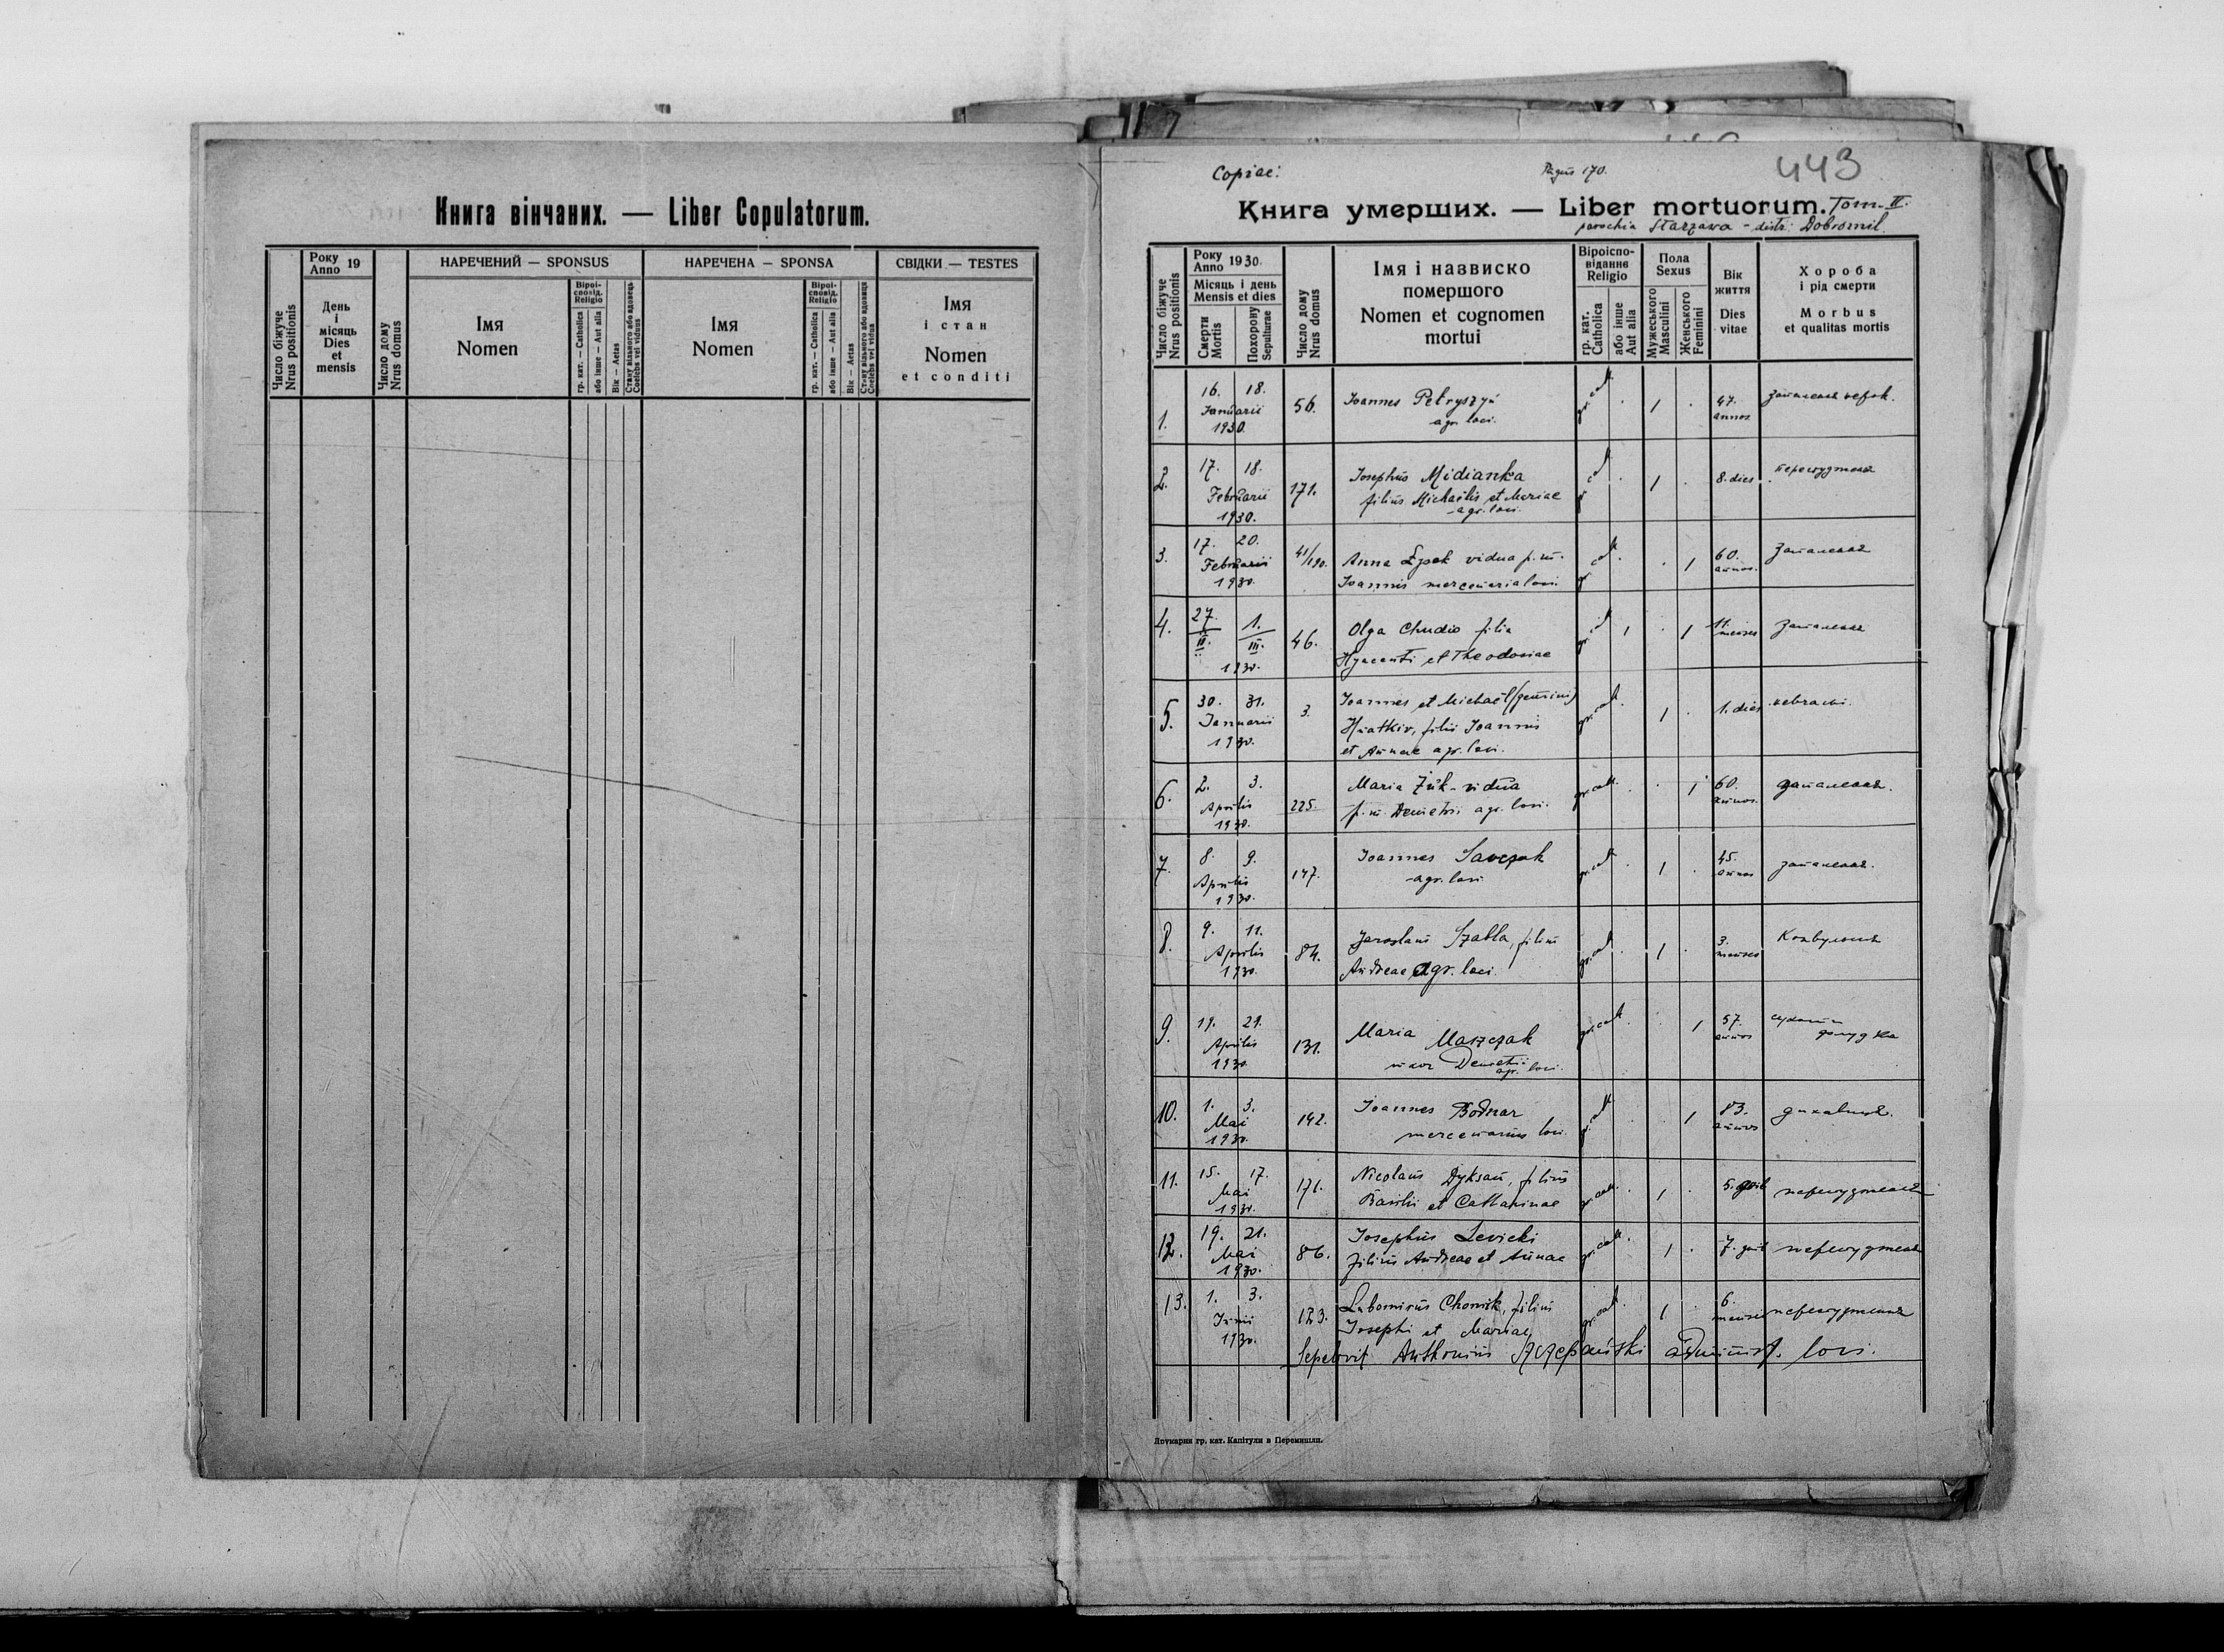 Книга вінчаних. — Liber Copulatorum.
Число біжуче
Nrus positionis
Року
Anno 19
День
і
місяць
Dies
et
mensis
Число дому
Nrus domus
НАРЕЧЕНИЙ — SPONSUS
Імя
Nomen
Віроі-
сповід.
Religio
гр. кат. — Catholica
або інше — Aut alia
Вік — Aetas
Стану вільного або вдовець
Coelebs vel viduus
НАРЕЧЕНА — SPONSA
Імя
Nomen
Віроі-
сповід.
Religio
гр. кат. — Catholica
або інше — Aut alia
Вік — Aetas
Стану вільного або вдовиця
Coelebs vel vidua
СВІДКИ — TESTES
Імя
і стан
Nomen
et conditi
Copiae:
170.
443
Книга умерших. — Liber mortuorum. Tom. II.
parochia Starzawa - distr. Dobromil.
Число біжуче
Nrus positionis
Року
Anno 1930.
Місяць і день
Mensis et dies
Смерти
Mortis
Похорону
Sepulturae
Число дому
Nrus domus
Імя і назвиско
помершого
Nomen et cognomen
mortui
Віроіспо-
віданнє
Religio
гр. кат.
Catholica
або інше
Aut alia
Пола
Sexus
Мужеського
Masculini
Женського
Feminini
Вік
життя
Dies
vitae
Хороба
і рід смерти
Morbus
et qualitas mortis
1. 16. 18. Januarii 1930. 56. Ioannes Petryszyn gr. cat. 1 47. annos
agr. loci.
2. 17. 18. Februarii 1930. 171. Iosephus Midianka gr. cat. 1 8. dies
filius Michaelis et Mariae
agr. loci.
3. 17. 20. Februarii 1930. 41/190. Anna vidua p. m. gr. cat. 1 60. annos. запалення
Ioannis mercenaria loci.
4. 27. II. 1. III. 1930. 46. Olga Chudio filia gr. cat. 1 11. menses запалення
Hyacenti et Theodosiae
5. 30. 31. Januarii 1930. 3. Ioannes et Michaël (gemini) gr. cat. 1 1. dies
Hnatkiv, filii Ioannis
et Annae agr. loci.
6. 2. 3. Aprilis 1930. 225. Maria Żuk - vidua gr. cat. 1 60. annos. запалення.
p. m. Demetri agr. loci.
7. 8. 9. Aprilis 1930. 147. Ioannes Savczak gr. cat. 1 45. annos запалення.
agr. loci
8. 9. 11. Aprilis 1930. 84. Jaroslaus Szabla, filius gr. cat. 1 3. menses Конвульсия
Andreae agr. loci.
9. 19. 21. Aprilis 1930. 131. Maria Maszczak gr. cat. 1 57. annos
uxor Demetrii agr. loci.
10. 1. 3. Mai 1930. 142. Ioannes Bodnar gr. cat. 1 83. annos дихавиця.
mercenarius loci.
11. 15. 17. Mai 1930. 171. Nicolaus Dyksan, filius gr. cat. 1 5.
Basilii et Catharinae
12. 19. 21. Mai 1930. 86. Iosephus Levicki gr. cat. 1 7.
filius Andreae et Annae
13. 1. 3. Junii 1930. 173. Lubomirus Chomik, filius gr. cat. 1 6. menses
Josephi et Mariae
Sepelivit Anthonius Szczepański administ. loci.
Друкарня гр. кат. Капітули в Перемишли.